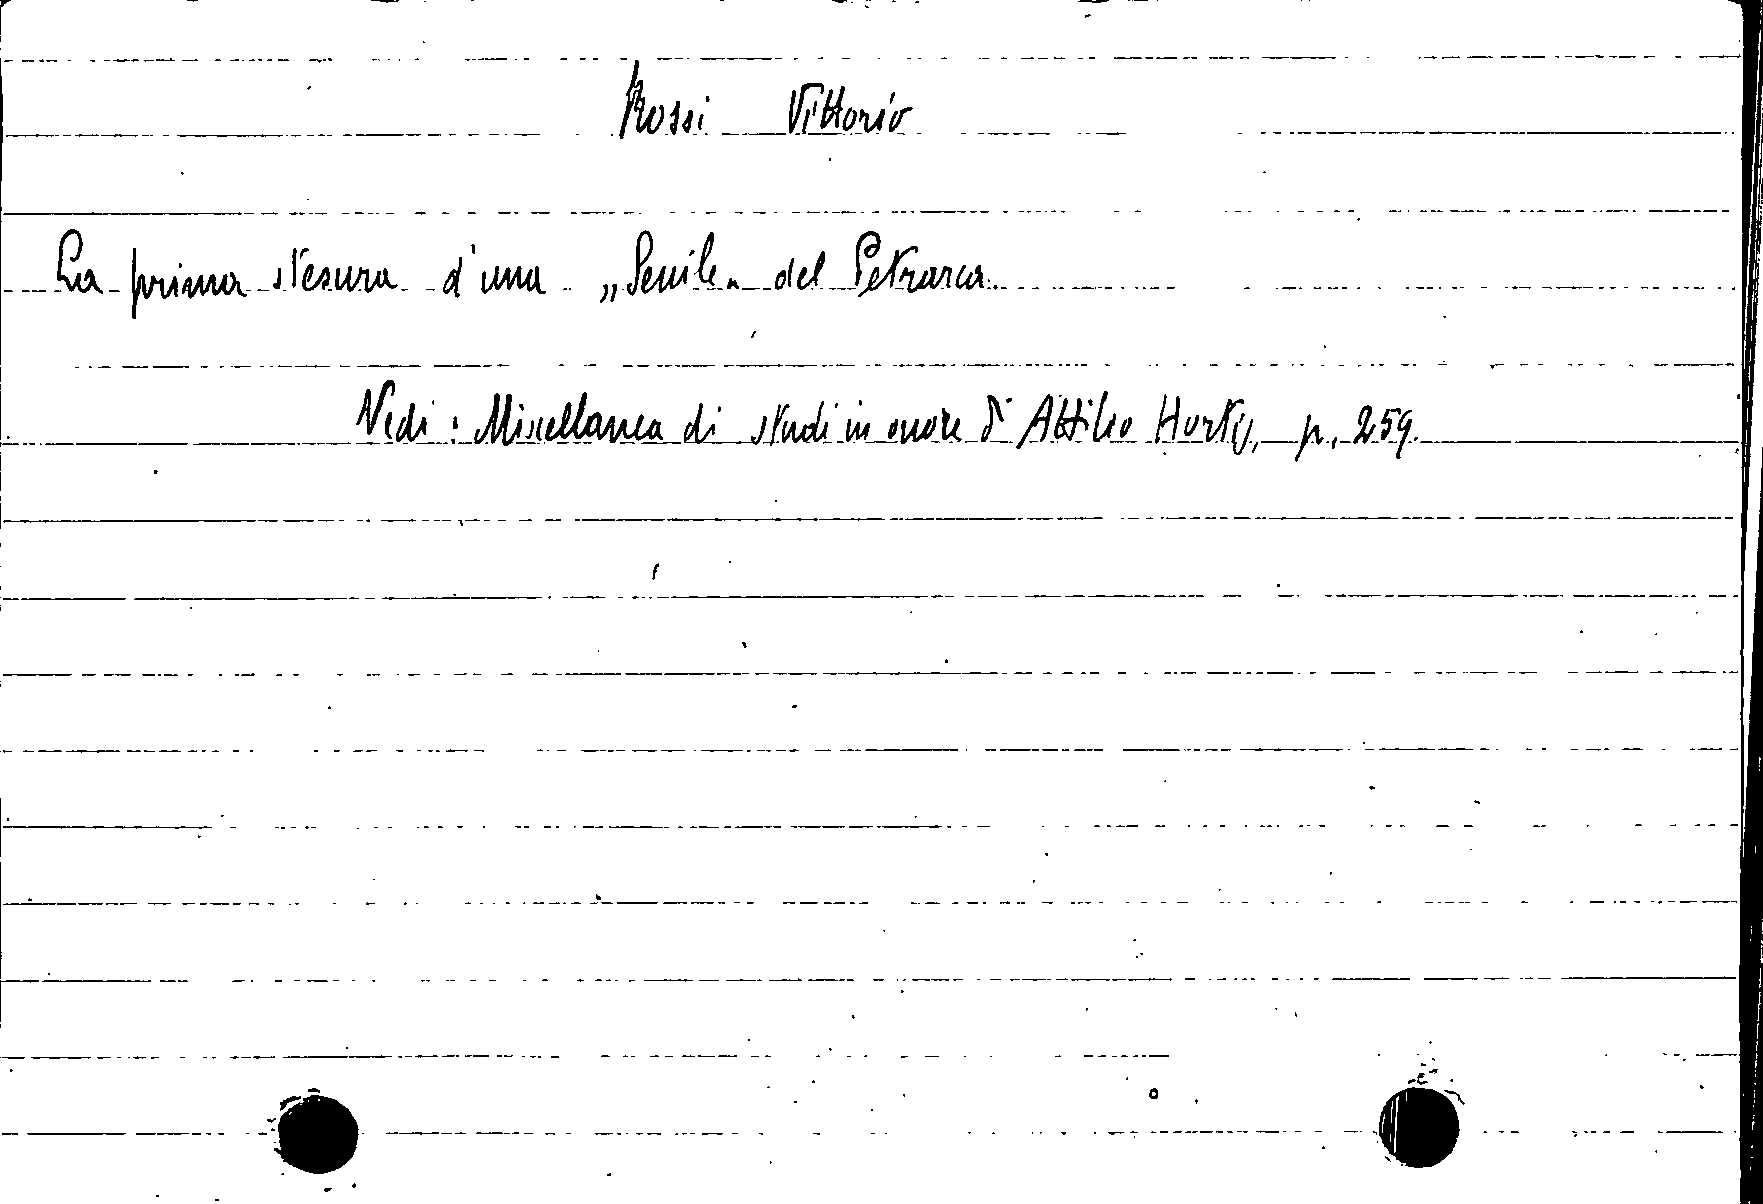 Rossi Vittorio
La prima stesura d'una „Senile„ del Petrarca.
Vedi: Miscellanea di studi in onore di Attilio Hortis, p. 259.